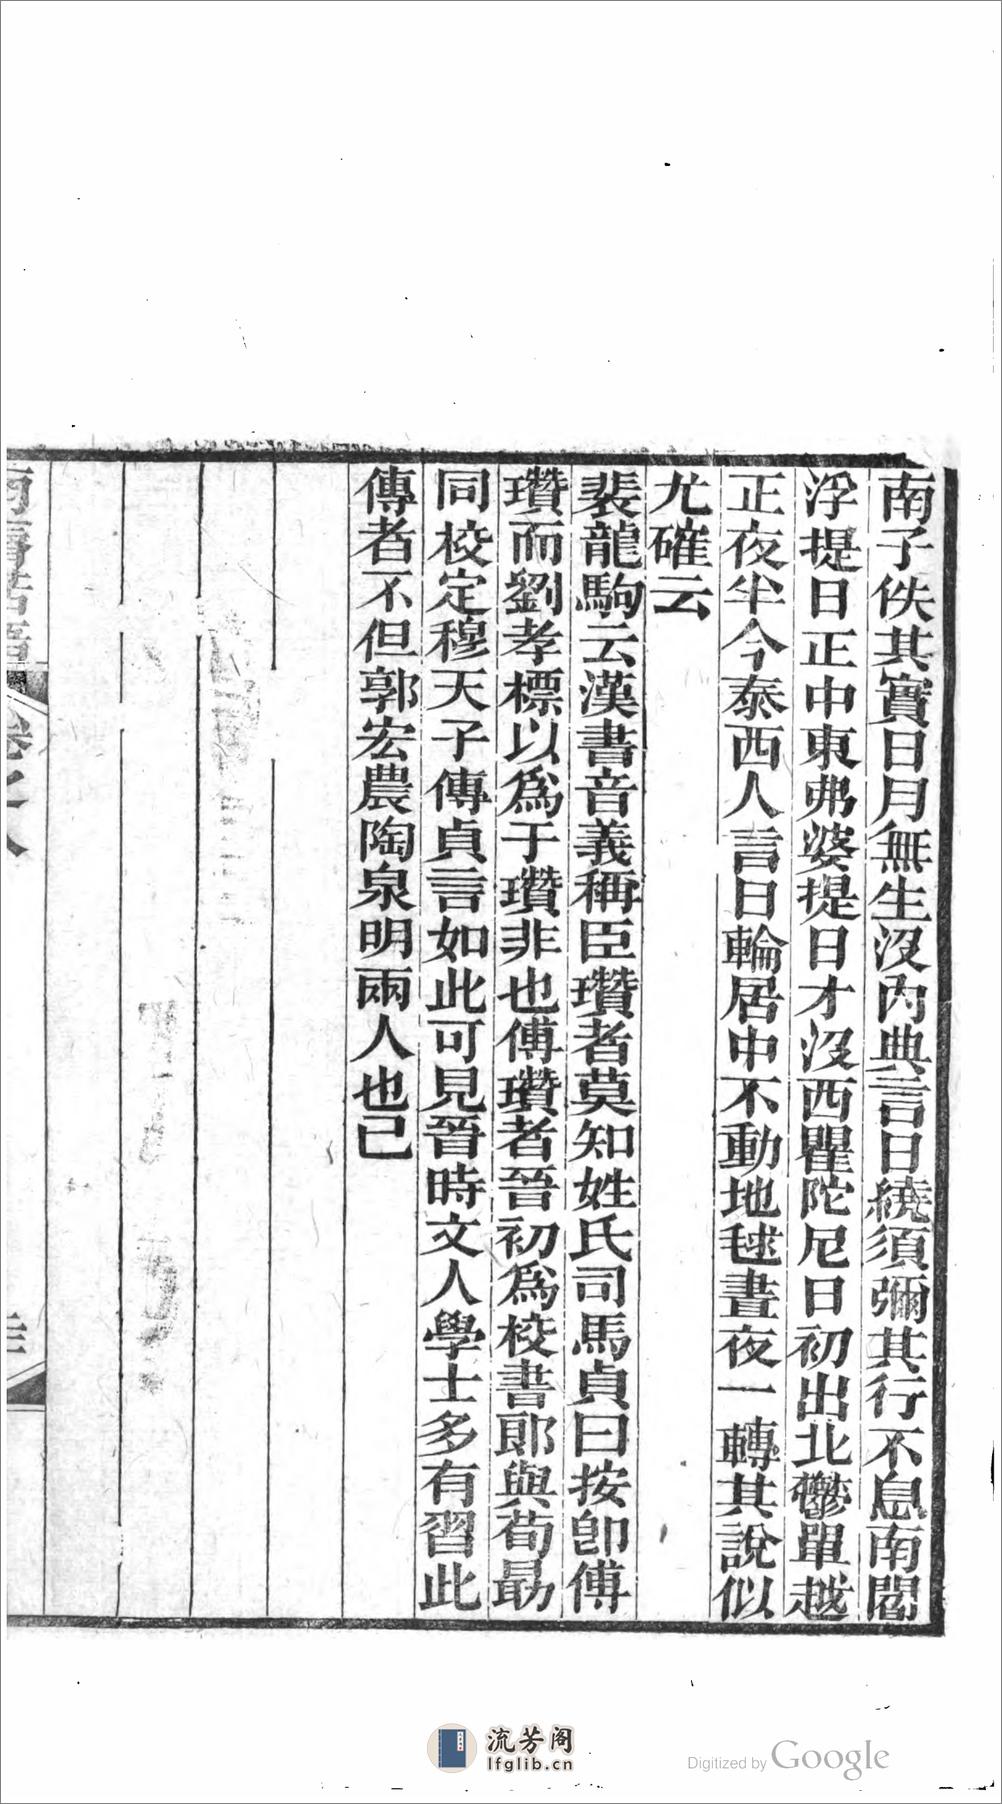 南子佚其實日月無生沒內典言日繞須彌其行不息南閻
浮提日正中東弗婆提日才沒西瞿陀尼日初出北鬱單越
正夜半今泰西人言日輪居中不動地毬晝夜一轉其說似
尤確云
裴龍駒云漢書音義稱臣瓚者莫知姓氏司馬貞曰按卽傅
瓚而劉孝標以爲于瓚非也傅瓚者晉初爲校書郞與荀勗
同校定穆天子傳貞言如此可見晉時文人學士多有習此
傳者不但郭宏農陶泉明兩人也已
卷之八
流芳阁
lfglib.cn
Digitized by Google